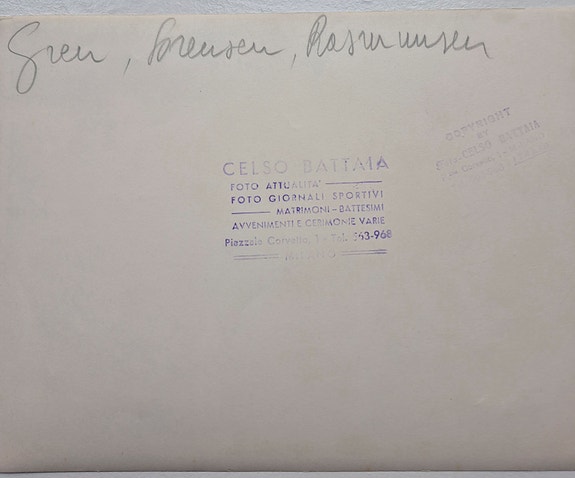 Gren, Sorensen, Rasmunsen
COPYRIGHT
BY
CELSO BATTAIA
CELSO BATTAIA
FOTO ATTUALITA'
FOTO GIORNALI SPORTIVI
MATRIMONI - BATTESIMI
AVVENIMENTI E CERIMONIE VARIE
Piazzale Corvetto, Tel. 563-968
MILANO